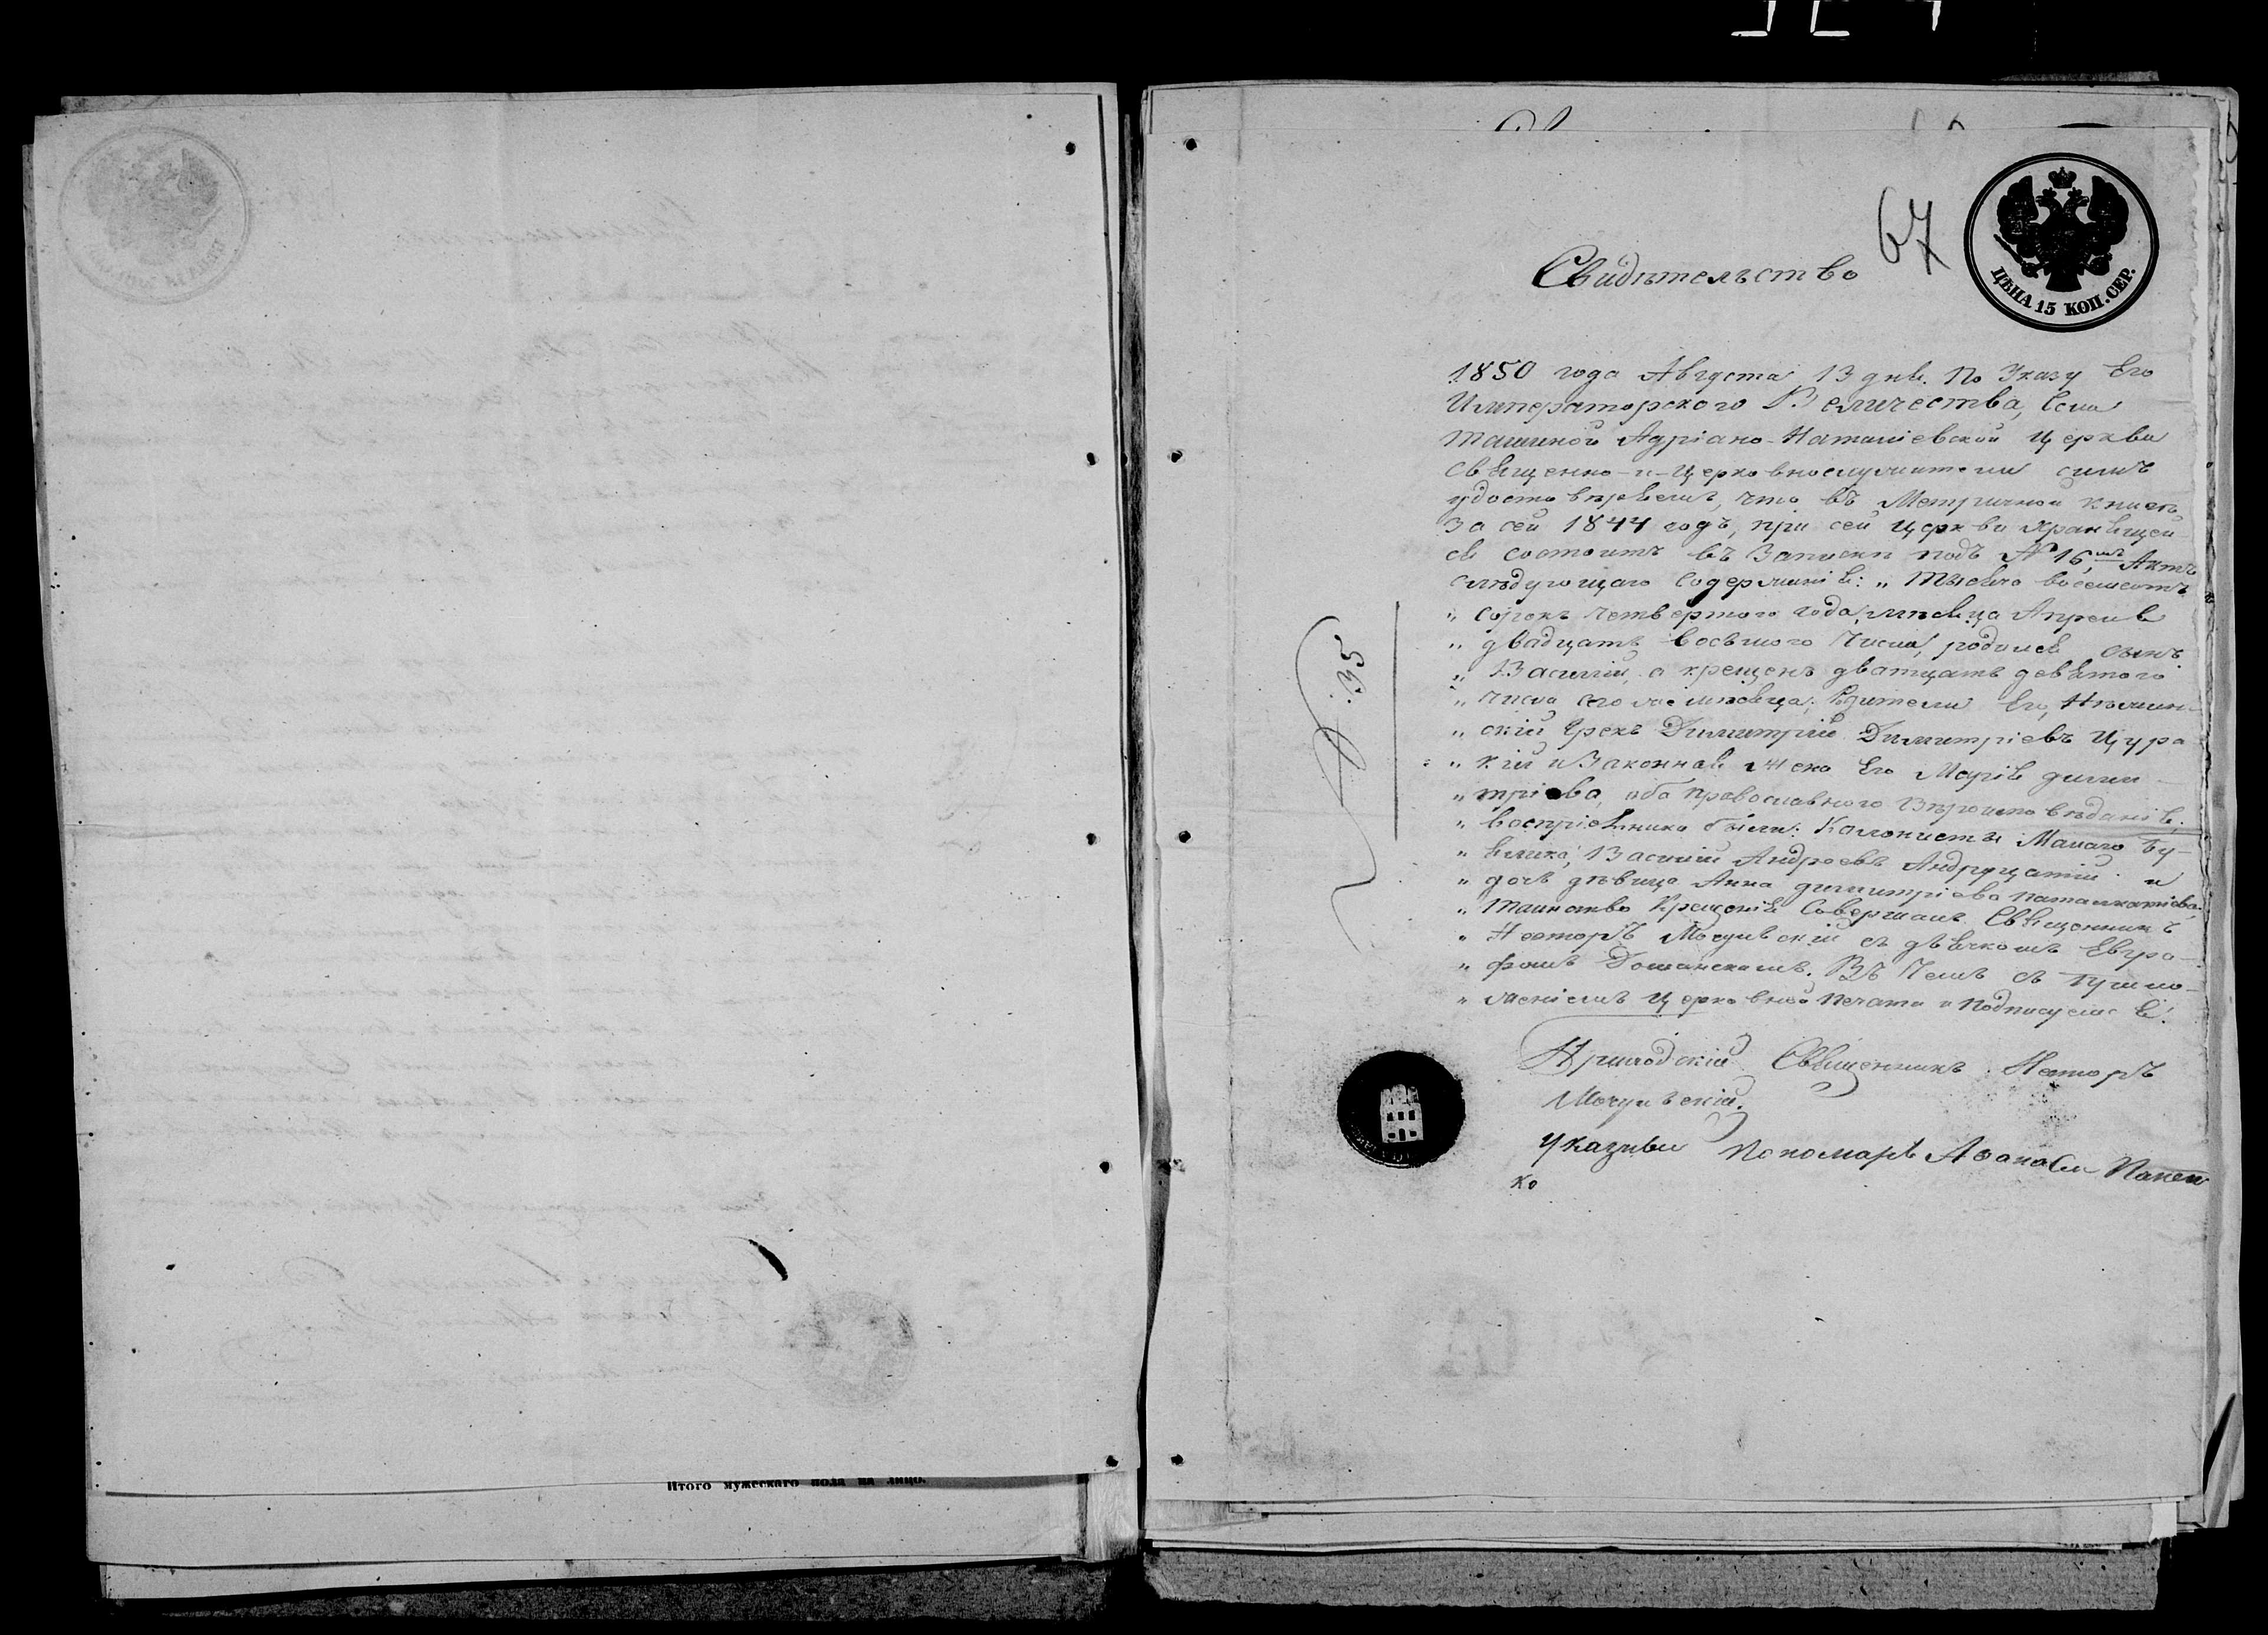 67
Свидѣтельство
ЦѢНА 15 КОП. СЕР.
1850 года Августа 13 дня. По Указу Его
Императорского Величества,
Адріано-Наталіевской Церкви
Священно-и-Церковнослужители симъ
удостовѣряемъ, что въ Метричной книгѣ
За сей 1844 годъ, при сей Церкви хранящей
ся состоитъ въ Записки подъ № 16,мъ Актъ
слѣдующаго Содержанія: „ Тысяча восемсотъ
„ сорокъ четвертого года, мѣсяца Апреля
„ двадцать восьмого числа, родился сынъ
„ Василій, а крещенъ дватцать девятого
„ числа сего же мѣсяца; Его, Нѣжин-
„ скій Грекъ Димитрій Димитріевъ Цура
„ кій и Законная Жена Его Марія дими-
„ тріева, оба православного Вѣроисповѣданія;
„ воспріемники были: Колонисты Малаго Бу-
„ ялика, Василій Андреевъ и
„ дочь дѣвица Анна димитріева
„ Таинство Крещенія Совершалъ Священникъ
„ Несторъ съ дьячкомъ Евгра-
„ фомъ Въ Чемъ съ
„ женіемъ Церковной печати и подписуемся.
:35
Приходскій Священникъ Несторъ
Указный Пономарь Афанасій Панен
ко
Итого мужескаго пола на лицо.